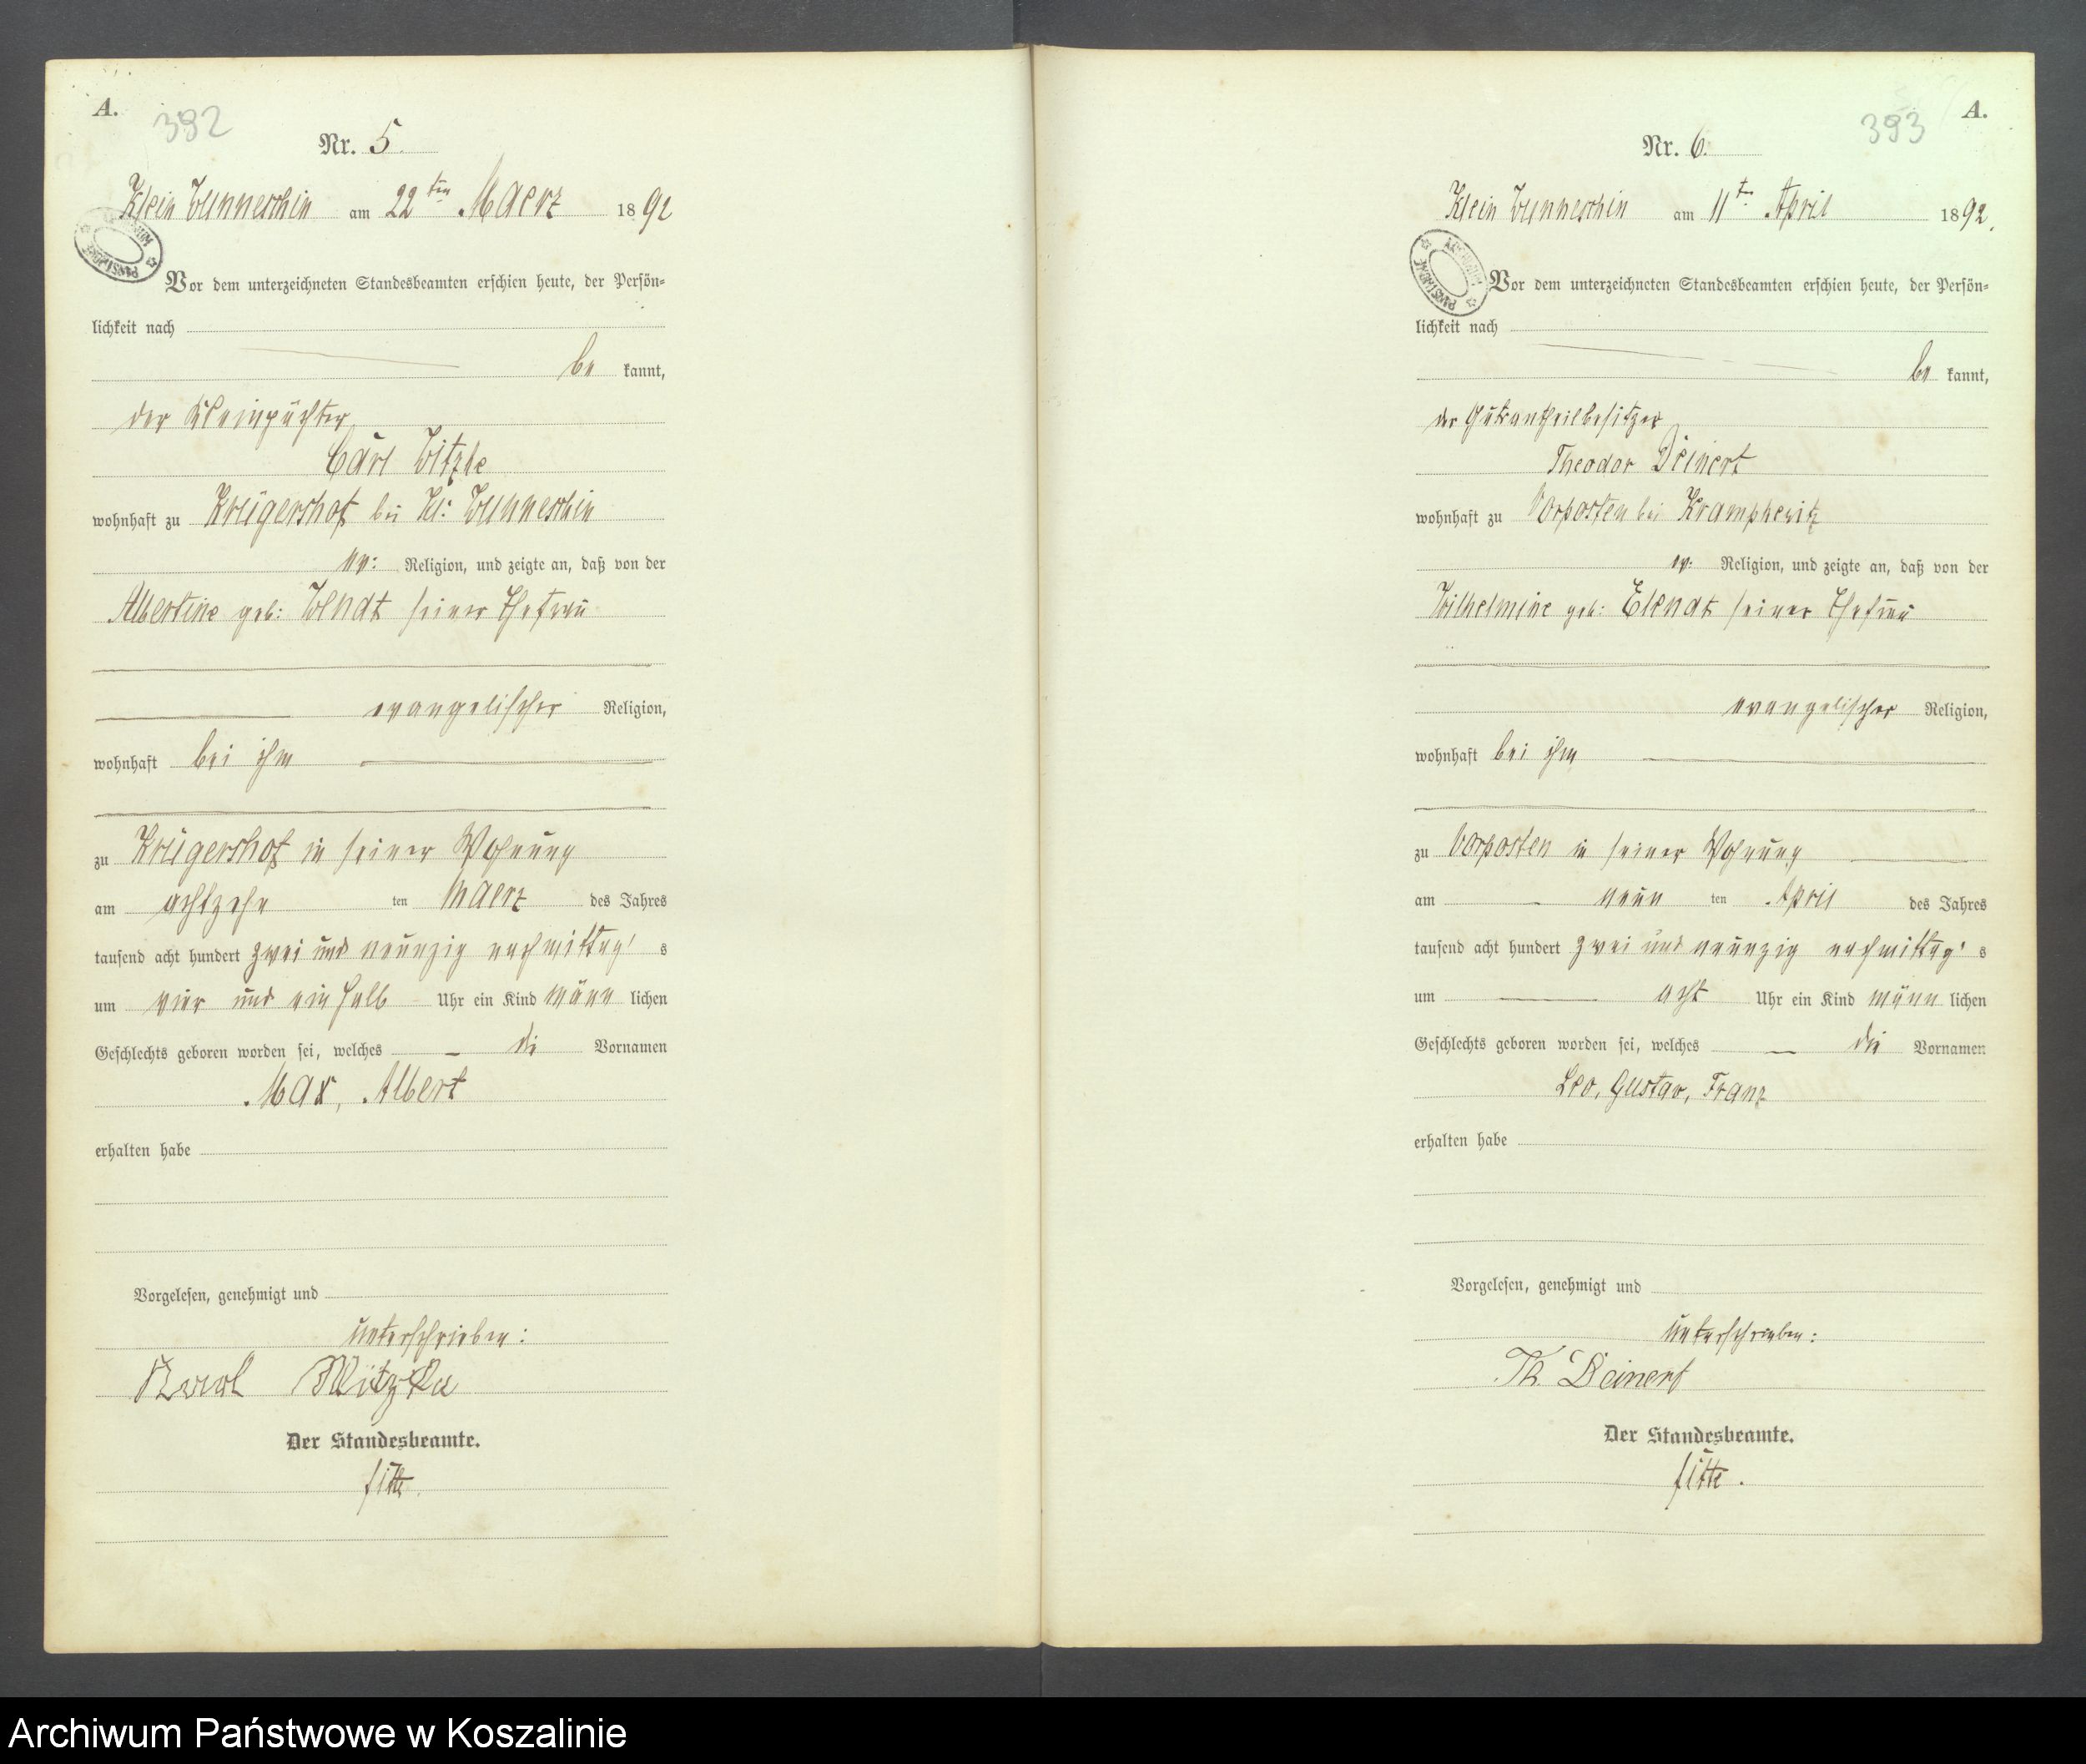 A.
392
Nr. 5.
Klein Wunneschin am 22ten Maerz 1892
Vor dem unterzeichneten Standesbeamten erschien heute, der Persön-
lichkeit nach
be kannt,
der Kleinpächter
Carl Witzke
wohnhaft zu Krügershof bei Kl: Wunneschin
ev: Religion, und zeigte an, daß von der
Albertine geb: Wendt seiner Ehefrau
evangelischer Religion,
wohnhaft bei ihm
zu Krügershof in seiner Wohnung
am achtzehn ten Maerz des Jahres
tausend acht hundert zwei und neunzig nachmittag's
um vier und ein halb Uhr ein Kind männ lichen
Geschlechts geboren worden sei, welches – die Vornamen
Max, Albert
erhalten habe
Vorgelesen, genehmigt und
unterschrieben:
Karl Witzke
Der Standesbeamte.
A.
393
Nr. 6.
Klein Wunneschin am 11t. April 1892.
Vor dem unterzeichneten Standesbeamten erschien heute, der Persön-
lichkeit nach
be kannt,
der Gutsantheilbesitzer
Theodor Deinert
wohnhaft zu Vorposten bei Krampkewitz
ev: Religion, und zeigte an, daß von der
Wilhelmine geb: Elendt seiner Ehefrau
evangelischer Religion,
wohnhaft bei ihm
zu Vorposten in seiner Wohnung
am neun ten April des Jahres
tausend acht hundert zwei und neunzig nachmittag's
um acht Uhr ein Kind männ lichen
Geschlechts geboren worden sei, welches – die Vornamen
Leo, Gustav, Franz
erhalten habe
Vorgelesen, genehmigt und
unterschrieben:
Th. Deinert
Der Standesbeamte.
Archiwum Państwowe w Koszalinie